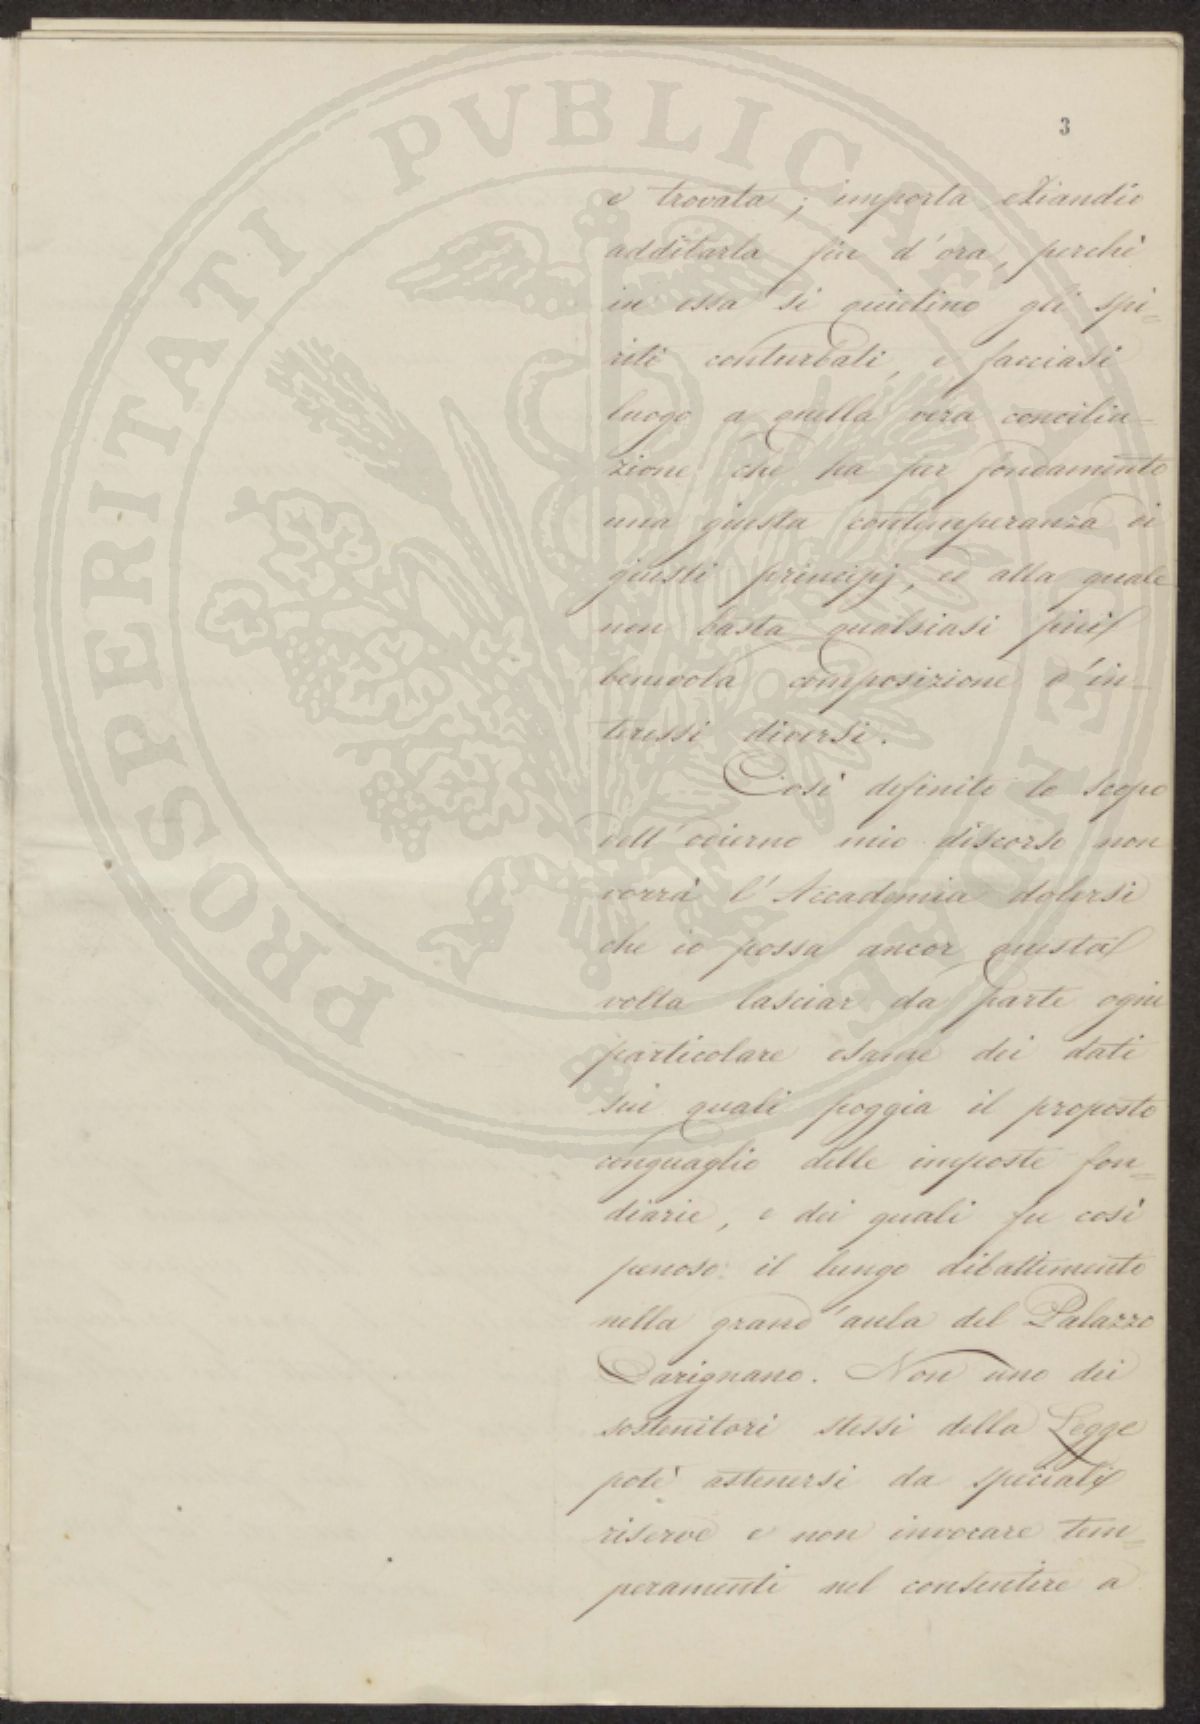 3
e trovata; importa eziandio
additarla fin d'ora, perchè
in essa si quietino gli spi=
riti conturbati, e facciasi
luogo a quella vera concilia=
zione che ha per fondamento
una giusta contemperanza di
giusti principj, ed alla quale
non basta qualsiasi più
benevola composizione d'in=
teressi diversi.
Così definito lo scopo
dell'odierno mio discorso non
vorrà l'Accademia dolersi
che io possa ancor questa
volta lasciar da parte ogni
particolare esame dei dati
sui quali poggia il proposto
conguaglio delle imposte fon=
diarie, e dei quali fu così
penoso il lungo dibattimento
nella grand'aula del Palazzo
Carignano. Non uno dei
sostenitori stessi della Legge
potè astenersi da speciali
riserve e non invocare tem=
peramenti nel consentire a
PROSPERITATI PVBLICAE AVGENDAE